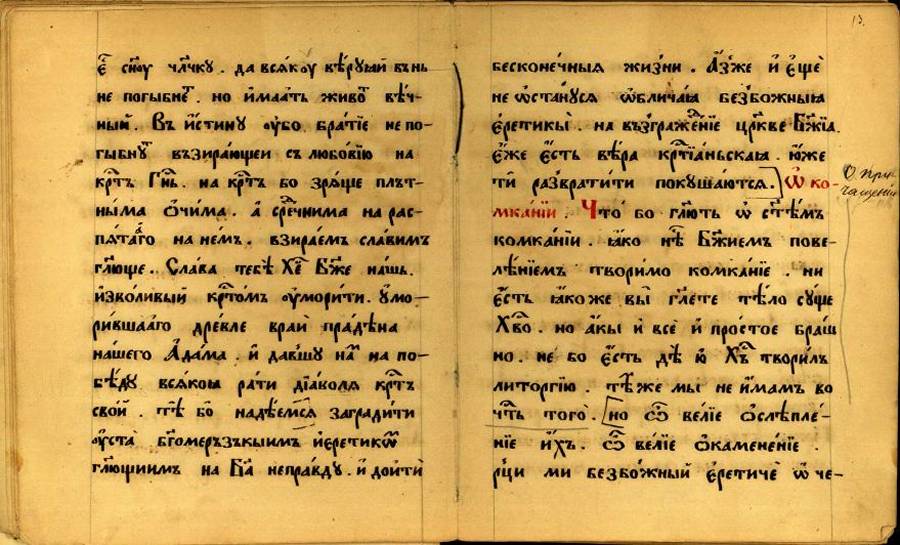 е҆ сн҃оу члч҃коу . да всѧ́коу вѣ́рꙋѧй въ нь
не погы́бнеⷮ . но и҆́маать живоⷮ вѣ́ч-
ный . Въ и҆́стинꙋ оу҆́бо братїе не по-
гы́бнꙋⷮ взира́ющеи съ любо́вїю на
крⷭ҇тъ Гн҃ь . на крⷭ҇тъ бо зрѧ́ще плъ́т-
ны́ма о҆чи́ма . а҆ срⷣе́чнима на рас-
пѧ́таго на не́мъ . взира́емъ сла́вимъ
гл҃юще . Сла́ва тебѣ̀ Хе҃ Бж҃е на́шь .
и҆зво́ливый крⷭ҇то́мъ оу҆мори́ти . оу҆мо-
ри́вшааго дре́вле враѝ пра́дѣна
на́шего А҆да́ма . и҆ да́вшꙋ наⷨ на по-
бѣ́дꙋ всѧ́коꙗ ра́ти дїа́волѧ крⷭ҇тъ
сво́й . тѣ́ бо надѣ́емсѧ загради́ти
оу҆ста̀ бг҃оме́ръзъкыимъ и҆ере́тикѡⷨ
гл҃ющиимъ на Бг҃а непра́вдꙋ . и҆ до́йти
13.
бесконе́чныѧ жи́зни . А҆́зже и҆ е҆щѐ
не ѡ҆ста́нꙋсѧ ѡ҆блича́ꙗ безбо́жныꙗ
е҆ретикы̀ . на възграже́нїе цр҃кве Бж҃їа .
е҆́же є҆́сть вѣ́ра крⷭ҇тїа́ньскаꙗ . ю҆́же
ті́и развра́тити покꙋша́ютсѧ . Ѡ҆ ко-
мка́нїи . Что́ бо гл҃ють ѡ҆ ст҃ѣ́мъ
комка́нїи . ꙗ҆́ко нѣⷭ҇ Бж҃їемъ пове-
лѣ́нїемъ твори́мо комка́нїе . ни
є҆́сть ꙗ҆́коже вы̀ гл҃ете тѣ́ло сꙋ́ще
Хв҃о . но а҆́кы и҆ всѐ и҆ про́стое браш
но . не бо є҆́сть дѣ́ ю҆ Хъⷭ҇ твори́лъ
литоргі́ю . тѣ́мже мы̀ не и҆́мамъ во
чьⷭ҇ть того̀ . но ѽ ве́лїе о҆слѣпле́-
нїе и҆́хъ . ѽ ве́лїе о҆камене́нїе .
рци́ ми безбо́жный е҆ре́тиче ѿ че-
О при-
чащеніи